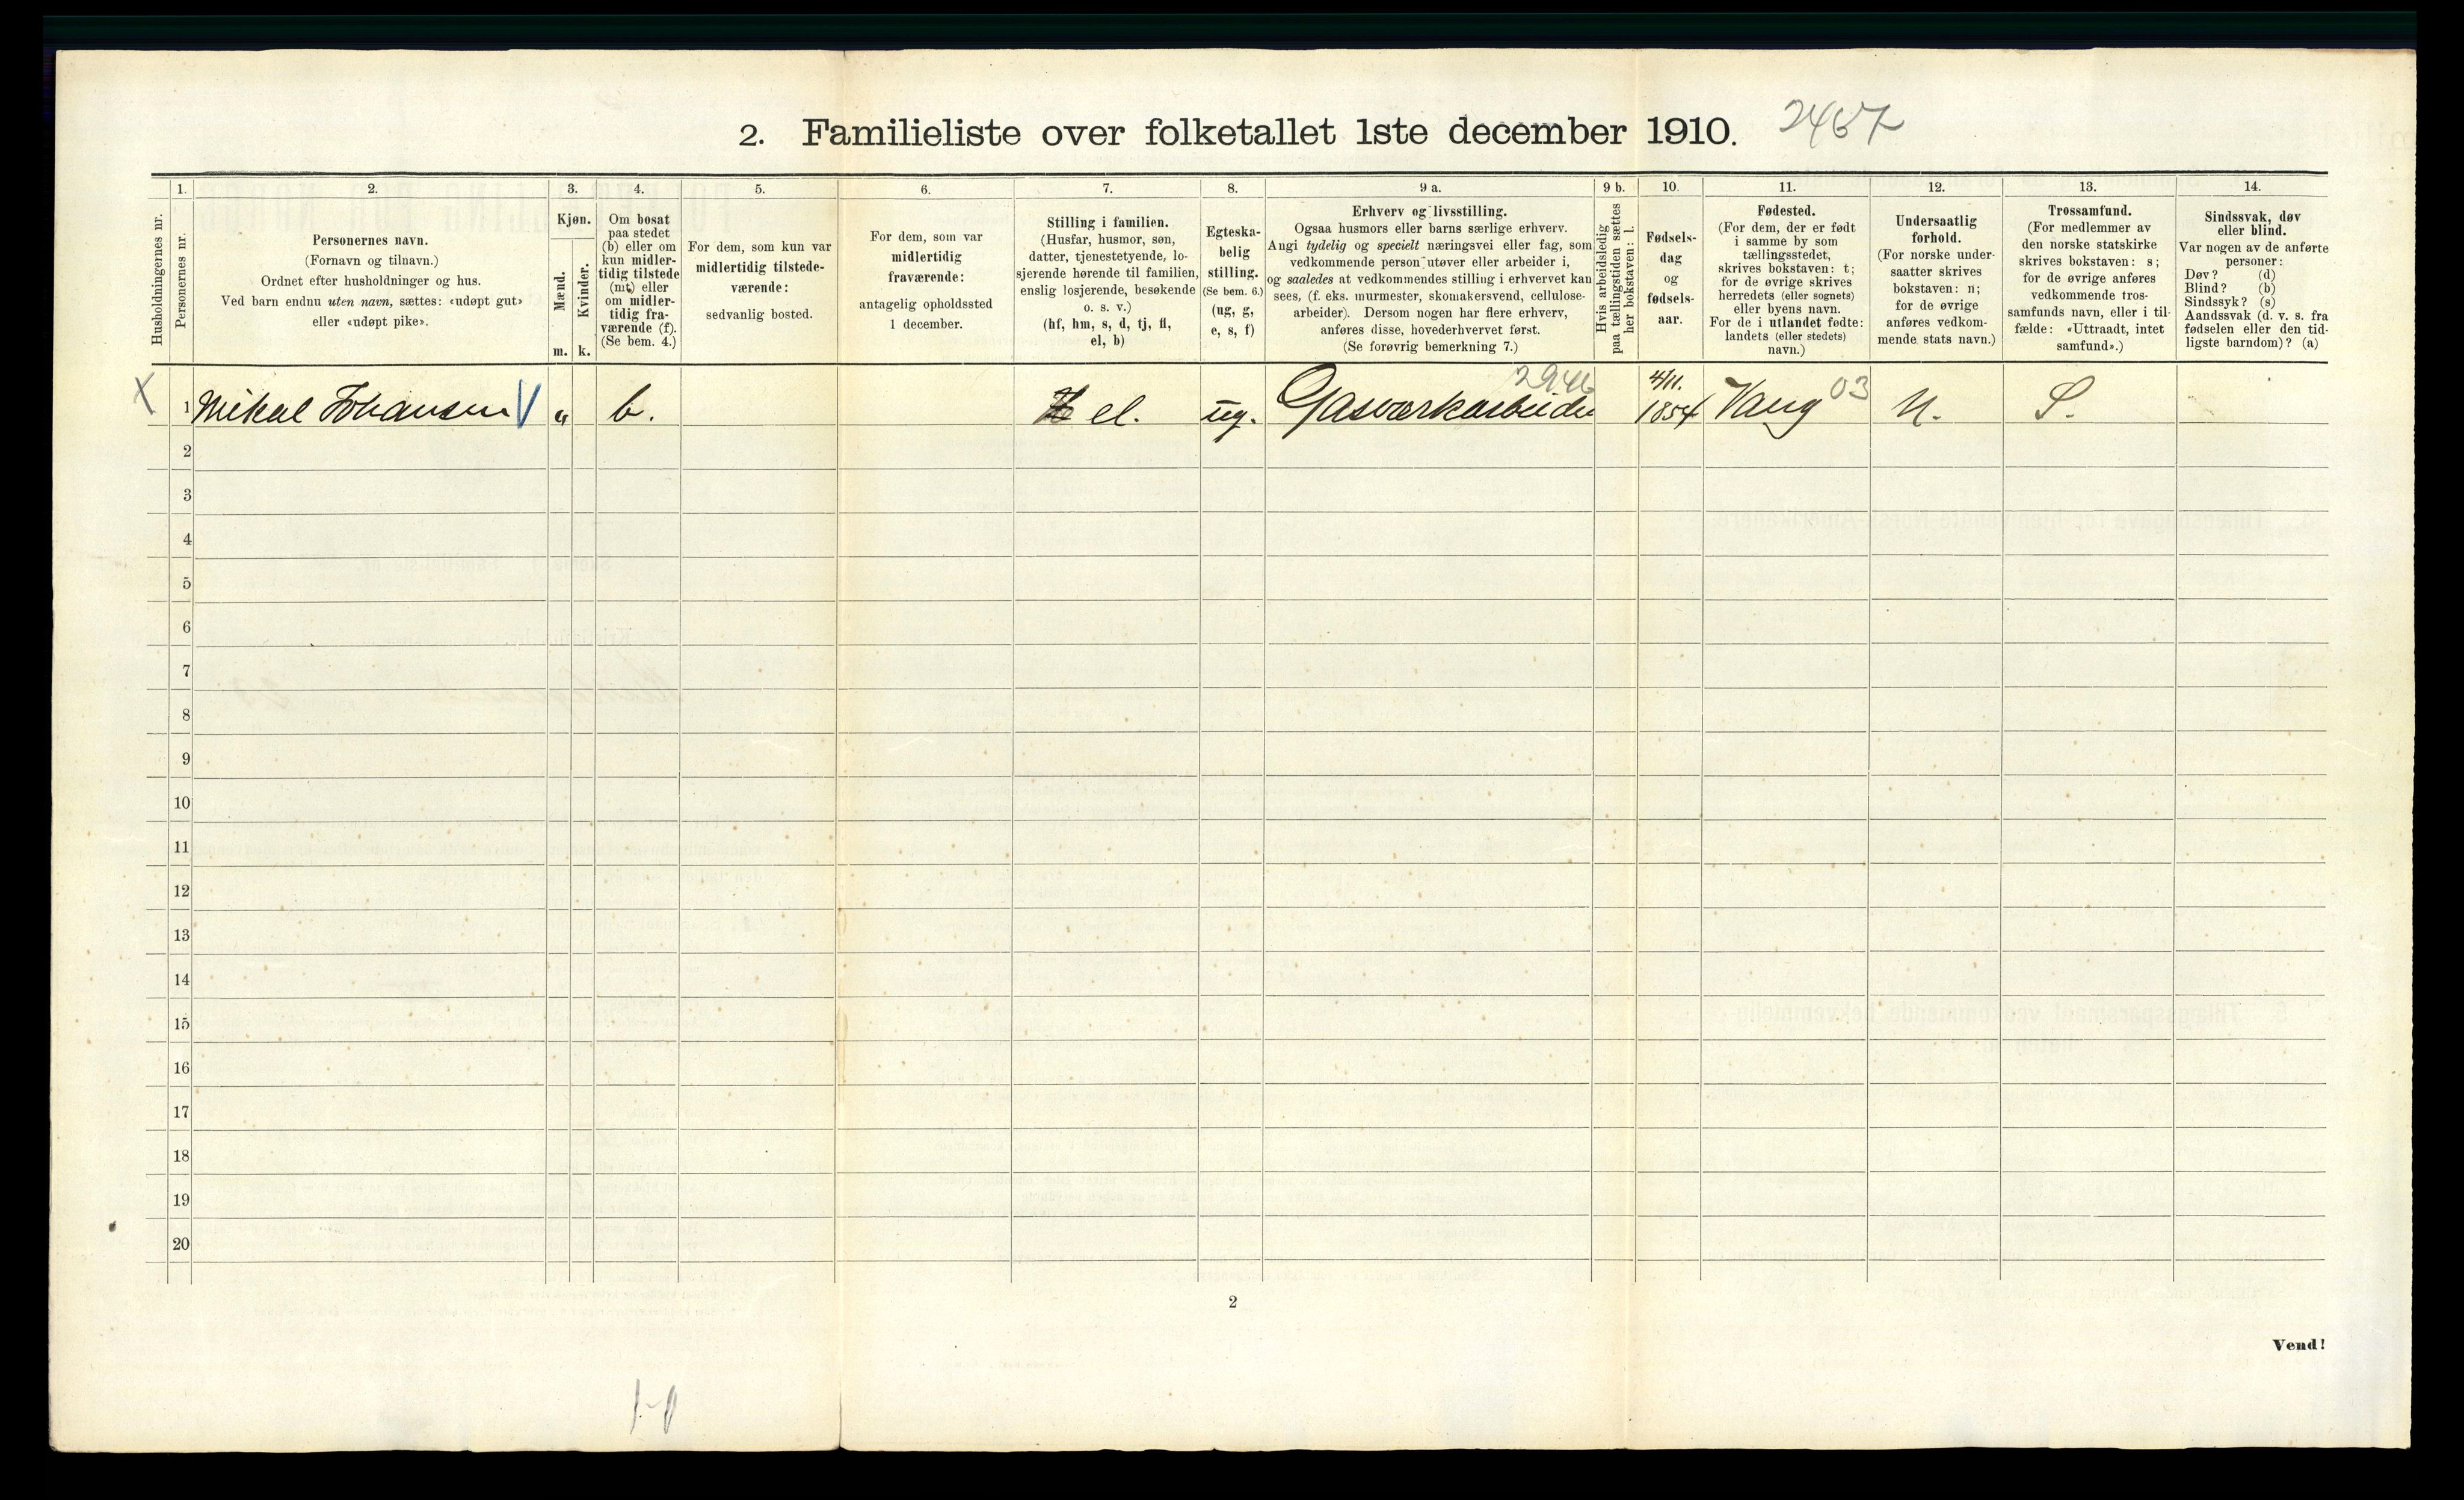 2. Familieliste over folketallet 1ste december 1910.
1. 2. 3. 4. 5. 6. 7. 8. 9 a. 9 b. 10. 11. 12. 13. 14.
Husholdningernes nr.
Personernes nr.
Personernes navn.
(Fornavn og tilnavn.)
Ordnet efter husholdninger og hus.
Ved barn endnu uten navn, sættes: «udøpt gut»
eller «udøpt pike».
Kjøn.
Mænd.
Kvinder.
m. k.
Om bosat
paa stedet
(b) eller om
kun midler-
tidig tilstede
(mt) eller
om midler-
tidig fra-
værende (f).
(Se bem. 4.)
For dem, som kun var
midlertidig tilstede-
værende:
sedvanlig bosted.
For dem, som var
midlertidig
fraværende:
antagelig opholdssted
1 december.
Stilling i familien.
(Husfar, husmor, søn,
datter, tjenestetyende, lo-
sjerende hørende til familien,
enslig losjerende, besøkende
o. s. v.)
(hf, hm, s, d, tj, fl,
el, b)
Egteska-
belig
stilling.
(Se bem. 6.)
(ug, g,
e, s, f)
Erhverv og livsstilling.
Ogsaa husmors eller barns særlige erhverv.
Angi tydelig og specielt næringsvei eller fag, som
vedkommende person utøver eller arbeider i,
og saaledes at vedkommendes stilling i erhvervet kan
sees, (f. eks. murmester, skomakersvend, cellulose-
arbeider). Dersom nogen har flere erhverv,
anføres disse, hovederhvervet først.
(Se forøvrig bemerkning 7.)
Hvis arbeidsledig
paa tællingstiden sættes
her bokstaven: l.
Fødsels-
dag
og
fødsels-
aar.
Fødested.
(For dem, der er født
i samme by som
tællingsstedet,
skrives bokstaven: t;
for de øvrige skrives
herredets (eller sognets)
eller byens navn.
For de i utlandet fødte:
landets (eller stedets)
navn.)
Undersaatlig
forhold.
(For norske under-
saatter skrives
bokstaven: n;
for de øvrige
anføres vedkom-
mende stats navn.)
Trossamfund.
(For medlemmer av
den norske statskirke
skrives bokstaven: s;
for de øvrige anføres
vedkommende tros-
samfunds navn, eller i til-
fælde: «Uttraadt, intet
samfund».)
Sindssvak, døv
eller blind.
Var nogen av de anførte
personer:
Døv? (d)
Blind? (b)
Sindssyk? (s)
Aandssvak (d. v. s. fra
fødselen eller den tid-
ligste barndom)? (a)
X 1 Mikal Johansen V " b. el. ug. Gasværkarbeider 4/11. 1854 Vang 03 n. S.
2
3
4
5
6
7
8
9
10
11
12
13
14
15
16
17
18
19
20
2
Vend!
1-0